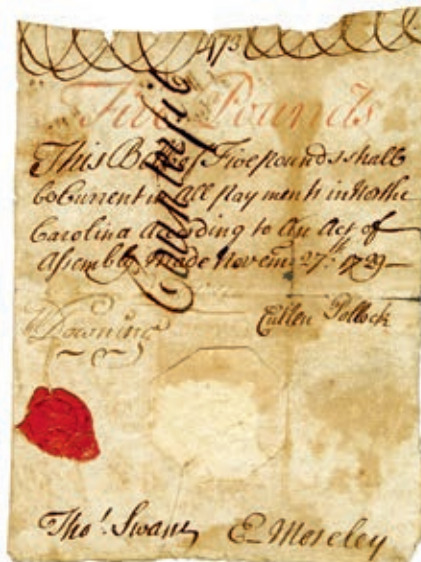 473
Five Pounds
This Bill of Five pounds shall
be Current in All payments in North
Carolina According to An Act of
Assembly Made Novem. 27th 1729
Counterfeit
W Downing
Cullen Pollock
Thos. Swann
E Moseley